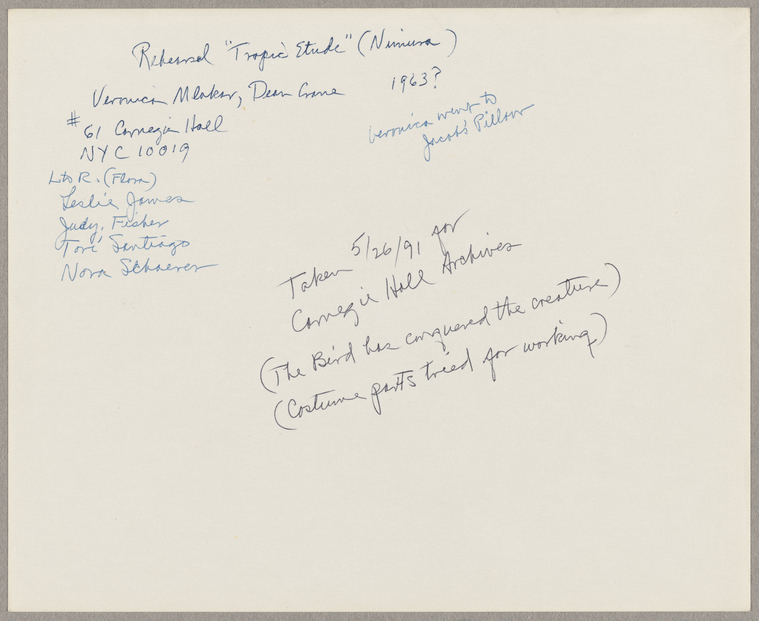 Rehearsal "Tropic Etude" (Nimura)
Veronica Mlakar, Dean Crane 1963?
# 61 Carnegie Hall
NYC 10019
Veronica went to
Jacob's Pillow
L to R. (Floor)
Leslie James
Judy, Fisher
Tori Santiago
Nora Schaerer
Taken 5/26/91 for
Carnegie Hall Archives
(The Bird has conquered the creature)
(Costume parts tried for working)